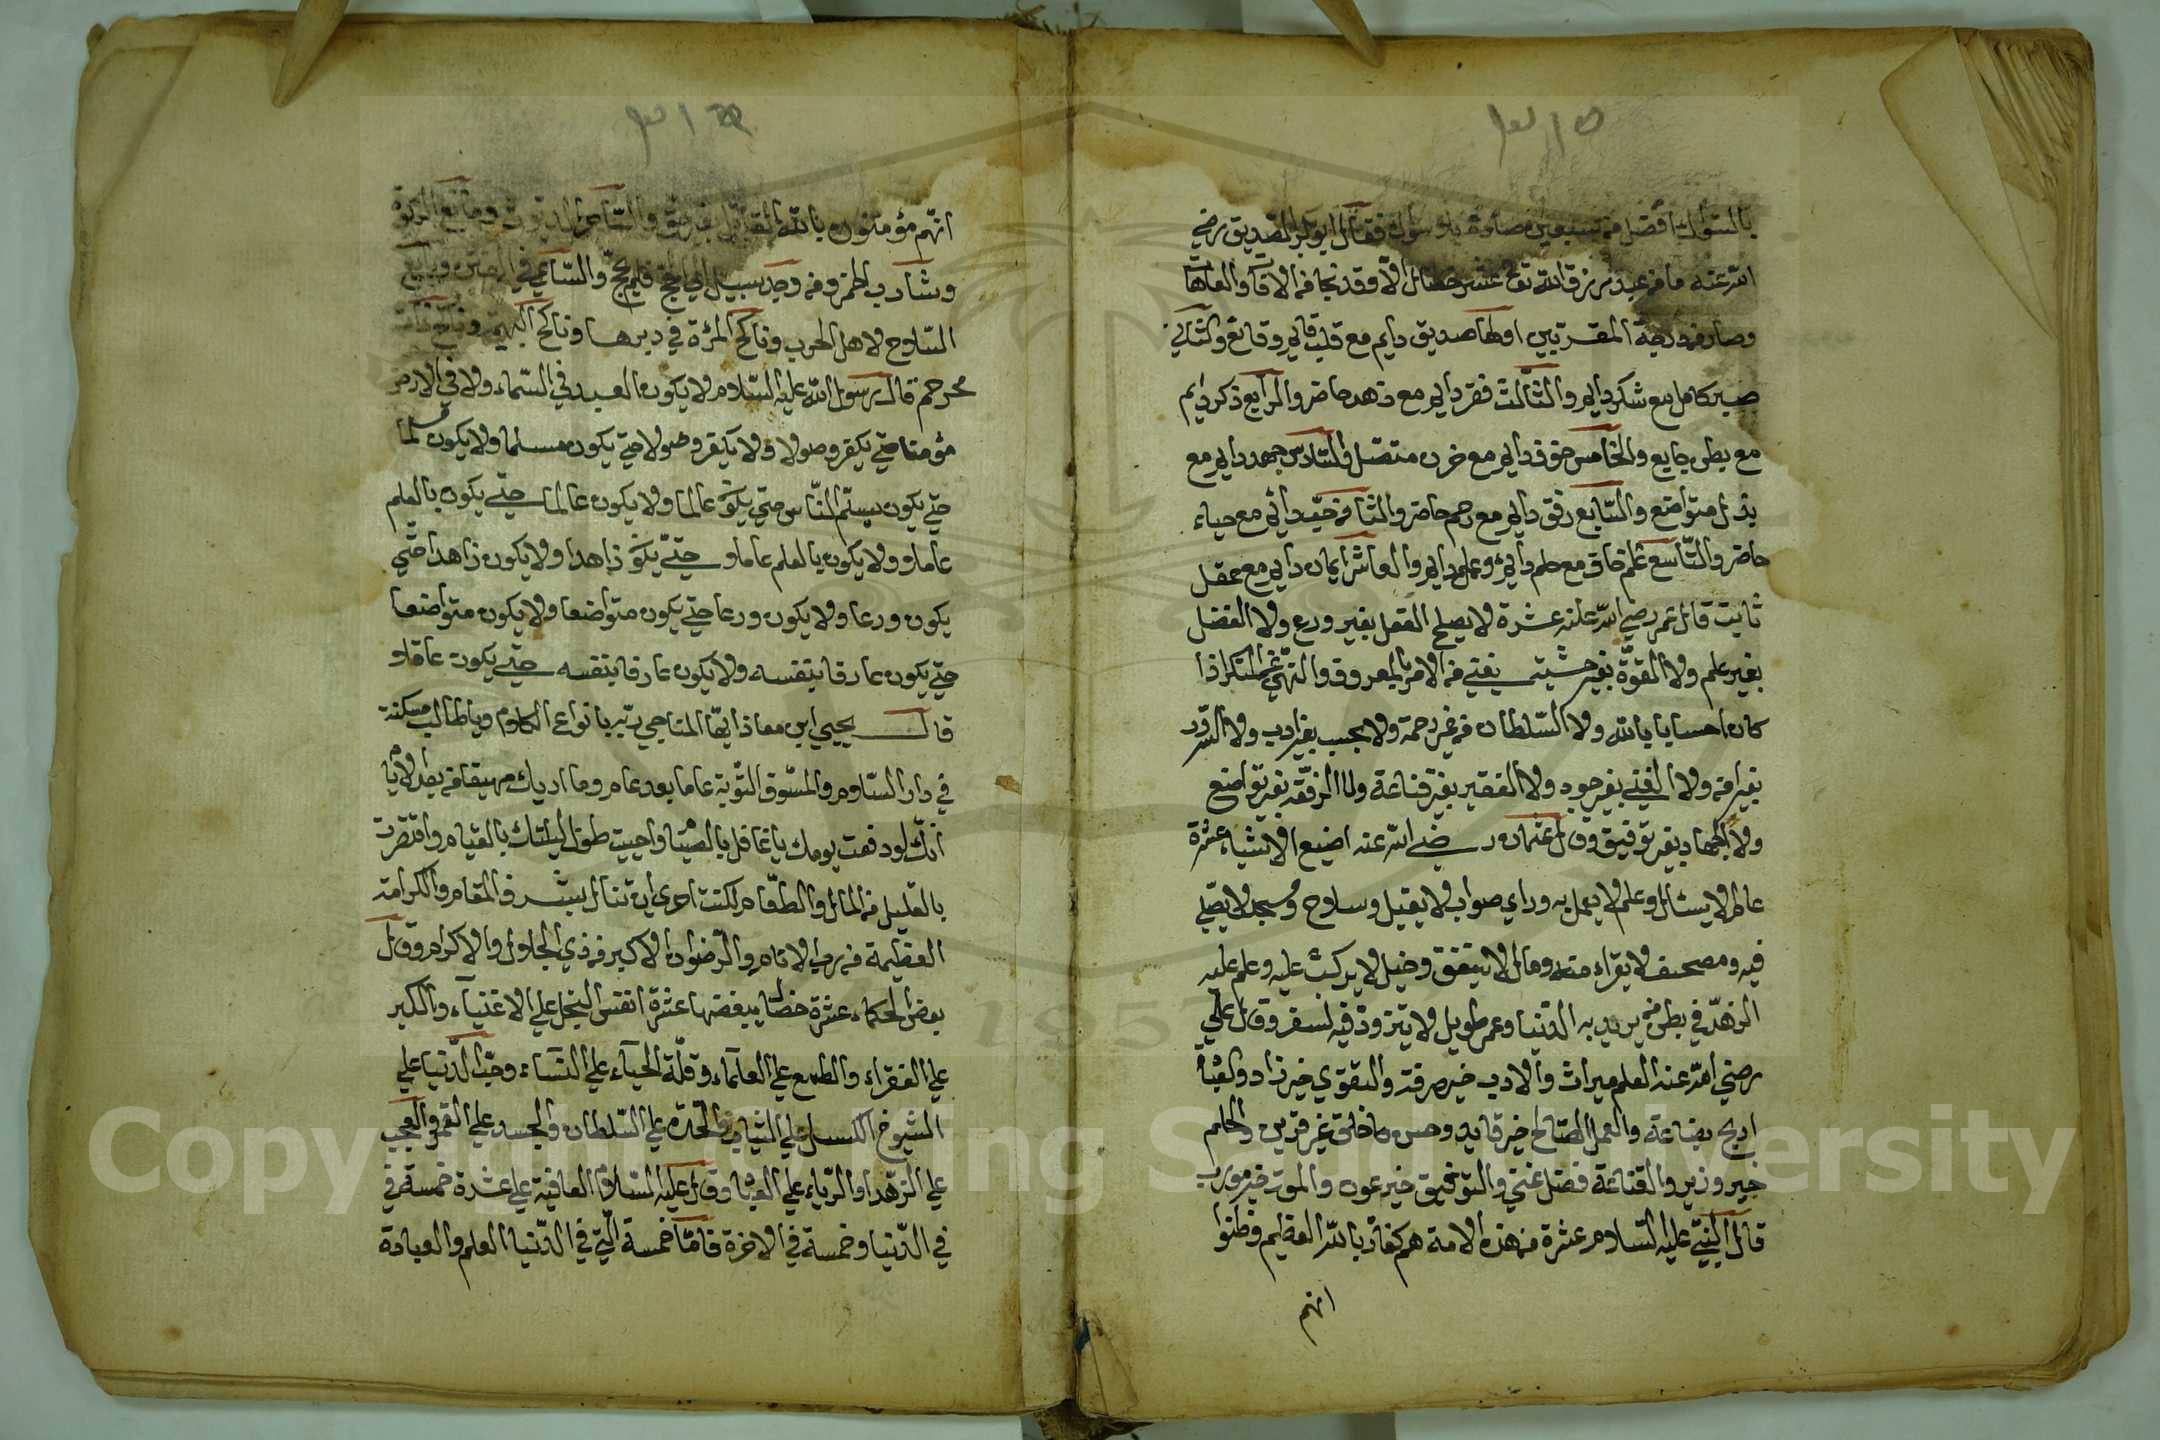 بالسواك افضل من سبعين صلوة بلا سواك فقال ابو بكر الصديق رضي
الله عنه ما من عبد رزقه الله عشر خصال الا وقد نجا من الافات والعاهات
وصار في درجة المقربين اولها صديق دايم مع قلب قانع والثاني
صبر كامل مع شكر دايم والثالث فقر دايم مع زهد حاضر والرابع ذكر دايم
مع بطن جايع والخامس خوف دايم مع حزن متصل والسادس جهد دايم مع
بدن متواضع والسابع رفق دايم مع رحم حاضر والثامن حب دائم مع حياء
حاضر والتاسع علم نافع مع حلم دايم وعمل دايم والعاشر ايمان دايم مع عقل
ثابت قال عمر رضي الله عنه عشرة لا يصلح العقل بغير ورع ولا الفضل
بغير علم ولا القوة بغير خشية يعني من الامر بالمعروف والنهي عن المنكر اذا
كان احسابا بالله ولا السلطان من غير رحمة ولا الحسب بغير ادب ولا السرور
بغير امن ولا الغني بغير جود ولا الفقير بغير قناعة ولا الرفعة بغير تواضع
ولا الجهاد بغير توفيق وقال عثمان رضي الله عنه اضيع الاشياء عشرة
عالم لا يسئل وعلم لا يعمل به وراي صواب لا يقبل وسلاح ومسجد لا يصلي
فيه ومصحف لا يقراء منه ومال لا ينفق وخيل لا يركب عليه وعلم عليه
الزهد في بطن من يريد به الدنيا وعمر طويل لا يتزود فيه لسفر وقال علي
رضي الله عنه العلم ميراث والادب خير حرفة والتقوي خير زاد والعبادة
اربح بضاعة والعمل الصالح خير قايد وحسن الخلق خير قرين والحلم
خير وزير والقناعة فضل غني والتوفيق خير عون والموت خير مودب
قال النبي عليه السلام عشرة من هذه الامة هم كفار بالله العظيم وظنوا
انهم
انهم مؤمنون بالله القاتل بغير حق والساحر والديوث ومانع الزكوة
وشارب الخمر ومن وجد سبيلا الي الحج فلم يحج والساعي في الفتن وبايع
السلاح لاهل الحرب وناكح المرأة في دبرها وناكح البهيمة وناكح ذات
محرم قال رسول الله عليه السلام لا يكون العبد في السماء ولا في الارض
مؤمنا حتي يكون وصولا ولا يكون وصولا حتي يكون مسلما ولا يكون مسلما
حتي يكون يسلم الناس حتي يكون عالما ولا يكون عالما حتي يكون بالعلم
عاملا ولا يكون بالعلم عاملا حتي يكون زاهدا ولا يكون زاهدا حتي
يكون ورعا ولا يكون ورعا حتي يكون متواضعا ولا يكون متواضعا
حتي يكون عارفا بنفسه ولا يكون عارفا بنفسه حتي يكون عاقلا
قال يحيي ابن معاذ ايها المناجي ربه بانواع الكلام ويا طالب مسكنة
في دار السلام والمسوق التوبة عاما بعد عام وما اريك منصفا من بين الانام
انك لو دفعت يومك يا غافل بالصيام واحييت طول ليلتك بالقيام واقتصرت
بالقليل من المال والطعام لكنت احري ان تنال بشرف المقام والكرامة
العظيمة من رب الانام والرضوان الاكبر من ذي الجلال والاكرام وقال
بعض الحكماء عشرة خصال يبغضها عشرة انفس البخل علي الاغنياء والكبر
علي الفقراء والطمع علي العلماء وقلة الحياء علي النساء وحب الدنيا علي
الشيوخ الكسل علي الشباب والحدة علي السلطان والحسد علي القمر والعجب
علي الزهد والرياء علي العباد وقال عليه السلام العافية علي عشرة خمسة في
في الدنيا وخمسة في الاخرة فاما خمسة التي في الدنيا العلم والعبادة
Copyright © King Saud University
1957